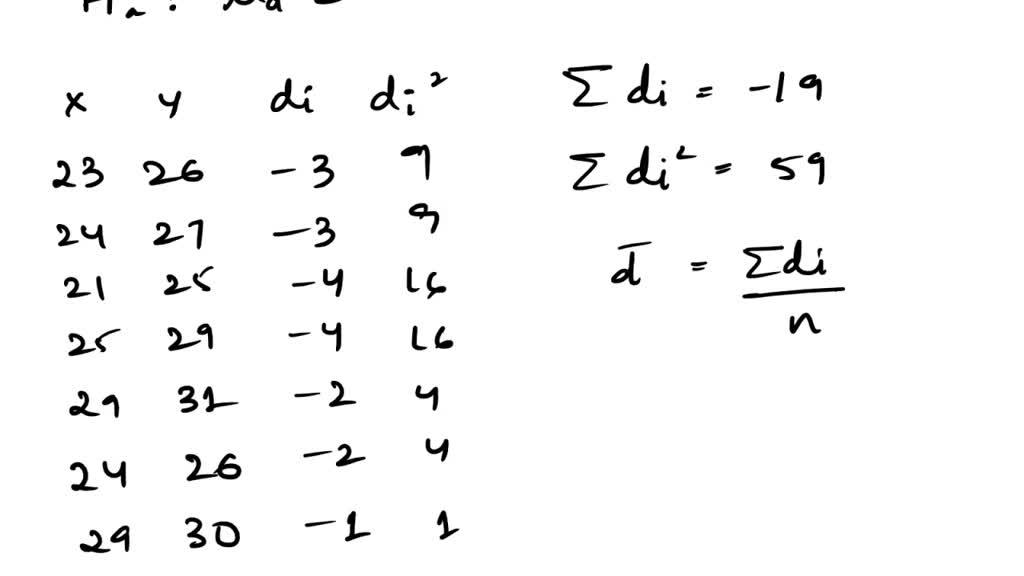 x y di di²
23 26 -3 9
24 27 -3 9
21 25 -4 16
25 29 -4 16
29 31 -2 4
24 26 -2 4
29 30 -1 1
Σ di = -19
Σ di² = 59
d̄ = Σdi / n